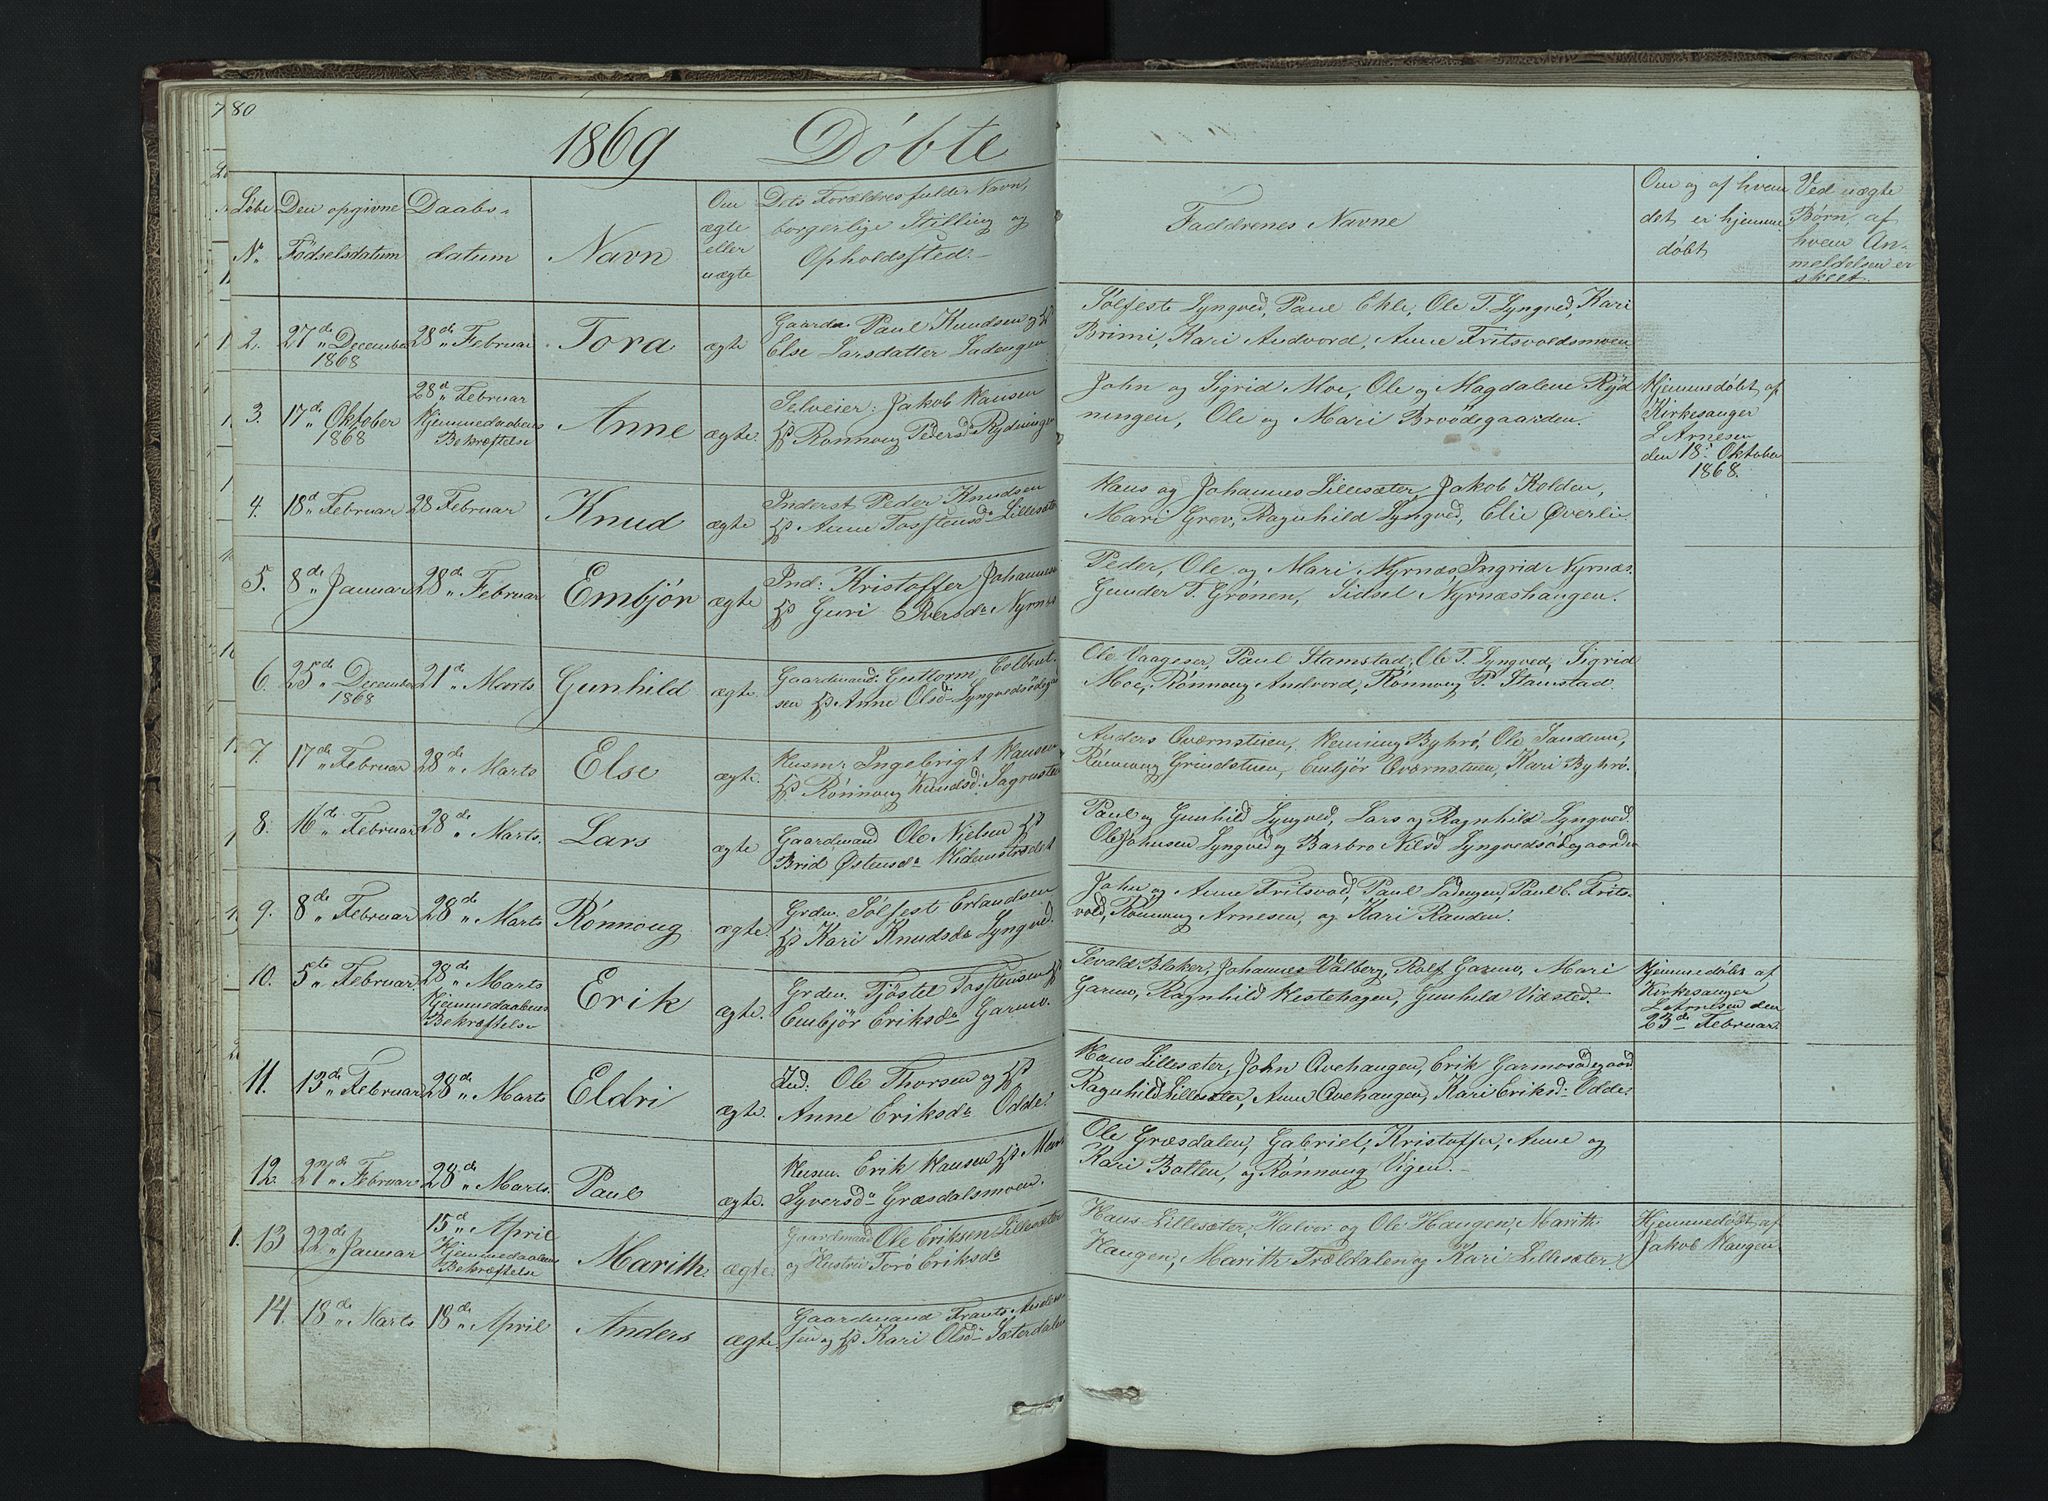 780
1869 Döbte
Løbe N.
Den opgivne Födselsdatum
Daabsdatum
Navn
Om ægte eller uægte
Dets Forældres fulde Navn, borgerlige Stilling og Opholdssted.
Faddrenes Navne
Om og af hvem det er hjemmedöbt
Ved uægte Børn, af hvem Anmeldelsen er skeet.
2. 27de December 1868
28de Februar
Tora
ægte
Gaardm. Paul Knudsen og H
Else Larsdatter Ladengen
Sölfeste Lyngved, Paul Ekle, Ole T. Lyngved, Kari
Brimi, Kari Andvord, Anne Fritsvoldsmoen.
3. 17de Oktober 1868
28de Februar
Hjemmedaabens
Bekræftelse
Anne
ægte.
Selveier: Jakob Hansen
H Rönnoug Pedersd. Rydningen
John og Sigrid Moe, Ole og Magdalene Ryd
ningen, Ole og Mari Broödegaarden.
Hjemmedöbt af
Kirkesanger
L Arnesen
den 18: Oktober
1868.
4. 18d Februar
28 Februar
Knud
ægte
Inderst Peder Knudsen
H Anne Tosstensd. Lillesæter
Hans og Johannes Lillesæter, Jakob Kolden,
Mari Grev, Ragnhild Lyngved, Elie Øverlie.
5. 8de Januar
28de Februar
Embjör
ægte
Ind: Kristoffer Johannesen
H Guri Iversd. Nyrnæs
Peder, Ole og Mari Nyrnæs, Ingrid Nyrnæs.
Gunder T. Grönen, Sidsel Nyrnæshaugen.
6. 25de December 1868
21de Marts
Gunhild
ægte.
Gaardmand: Guttorm Eolbent
sen H Anne Olsd. Lyngvedsödegaard
Ole Vaageser, Paul Stamstad, Ole T. Lyngved, Sigrid
Moe, Rönnoug Andvord, Rönnoug P. Stamstad.
7. 17de Februar
28de Marts
Else
ægte.
Husm: Ingebrigt Hansen
H. Rönnoug Knudsd: Sagrusten
Anders Qværnstuen, Heming Byhrö, Ole Sandum,
Rönnoug Grindstuen, Embjör Qværnstuen, Kari Byhrö.
8. 16de Februar
28de Marts.
Lars
ægte
Gaardmand Ole Nielsen H
Brid Østensd. Widemstrædet
Paul og Gunhild Lyngved, Lars og Ragnhild Lyngved
Ole Johnsen Lyngved og Barbro Nilsd Lyngvedsödegaarden
9. 8de Februar
28de Marts
Rönnoug
ægte.
Grdm. Sölfest Erlandsen
H Kari Knudsd. Lyngved.
John og Anne Fritsvold, Paul Ladengen, Paul E. Frits-
vold, Rönnoug Arnesen, og Kari Randen.
10. 5te Februar.
28de Marts
Hjemmedaabens
Bekræftelse
Erik
ægte.
Grdm. Tjöstel Tosstensen H
Embjör Eriksd. Garmo.
Sevald Blaker, Johannes Valberg, Rolf Garmo, Mari
Garmo, Ragnhild Hestehagen, Gunhild Vidsted.
Hjemmedöbt af
Kirkesanger
L. Arnesen den
23de Februar.
11. 13de Februar
28de Marts
Eldri
ægte.
Ind: Ole Thorsen og H
Anne Eriksd. Odde.
Hans Lillesæter, John Qvehaugen, Erik Garmosödegaard
Ragnhild Lillesæter, Anne Qvehaugen, Kari Eriksd: Odde.
12. 27de Februar
28de Marts.
Paul
ægte.
Husm. Erik Hansen H Mari
Syversd. Græsdalsmoen.
Ole Græsdalen, Gabriel, Kristoffer, Anne og
Kari Botten, og Rönnoug Vigen.
13 22de Januar
15d April
Hjemmedaabens
Bekræftelse
Marith.
ægte.
Gaardmand Ole Eriksen Lillesæter
og Hustru Torö Eriksd.
Hans Lillesæter, Halvor og Ole Haugen, Marith
Haugen, Marith Trældalen og Kari Lillesæter.
Hjemmedöbt af
Jakob Haugen
14. 18de Marts
18de April
Anders
ægte.
Gaardmand Frants Anders-
sen og H Kari Olsd. Sæterdalen